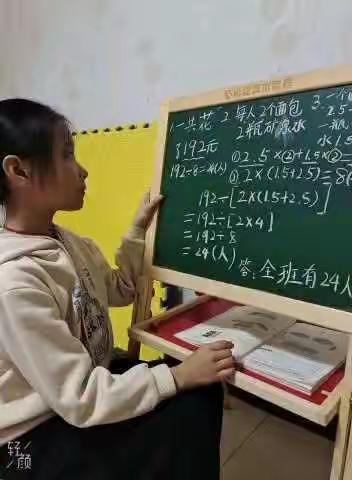 1.一共花
192元
192÷8=24(人)
2.每人2个面包
2瓶矿泉水
①2.5×②+1.5×②=
②2×(1.5+2.5)=8
3.一个面
2.5
一瓶
水1.5
192÷[2×(1.5+2.5)]
=192÷[2×4]
=192÷8
=24(人)
答:全班有24人
轻
颜